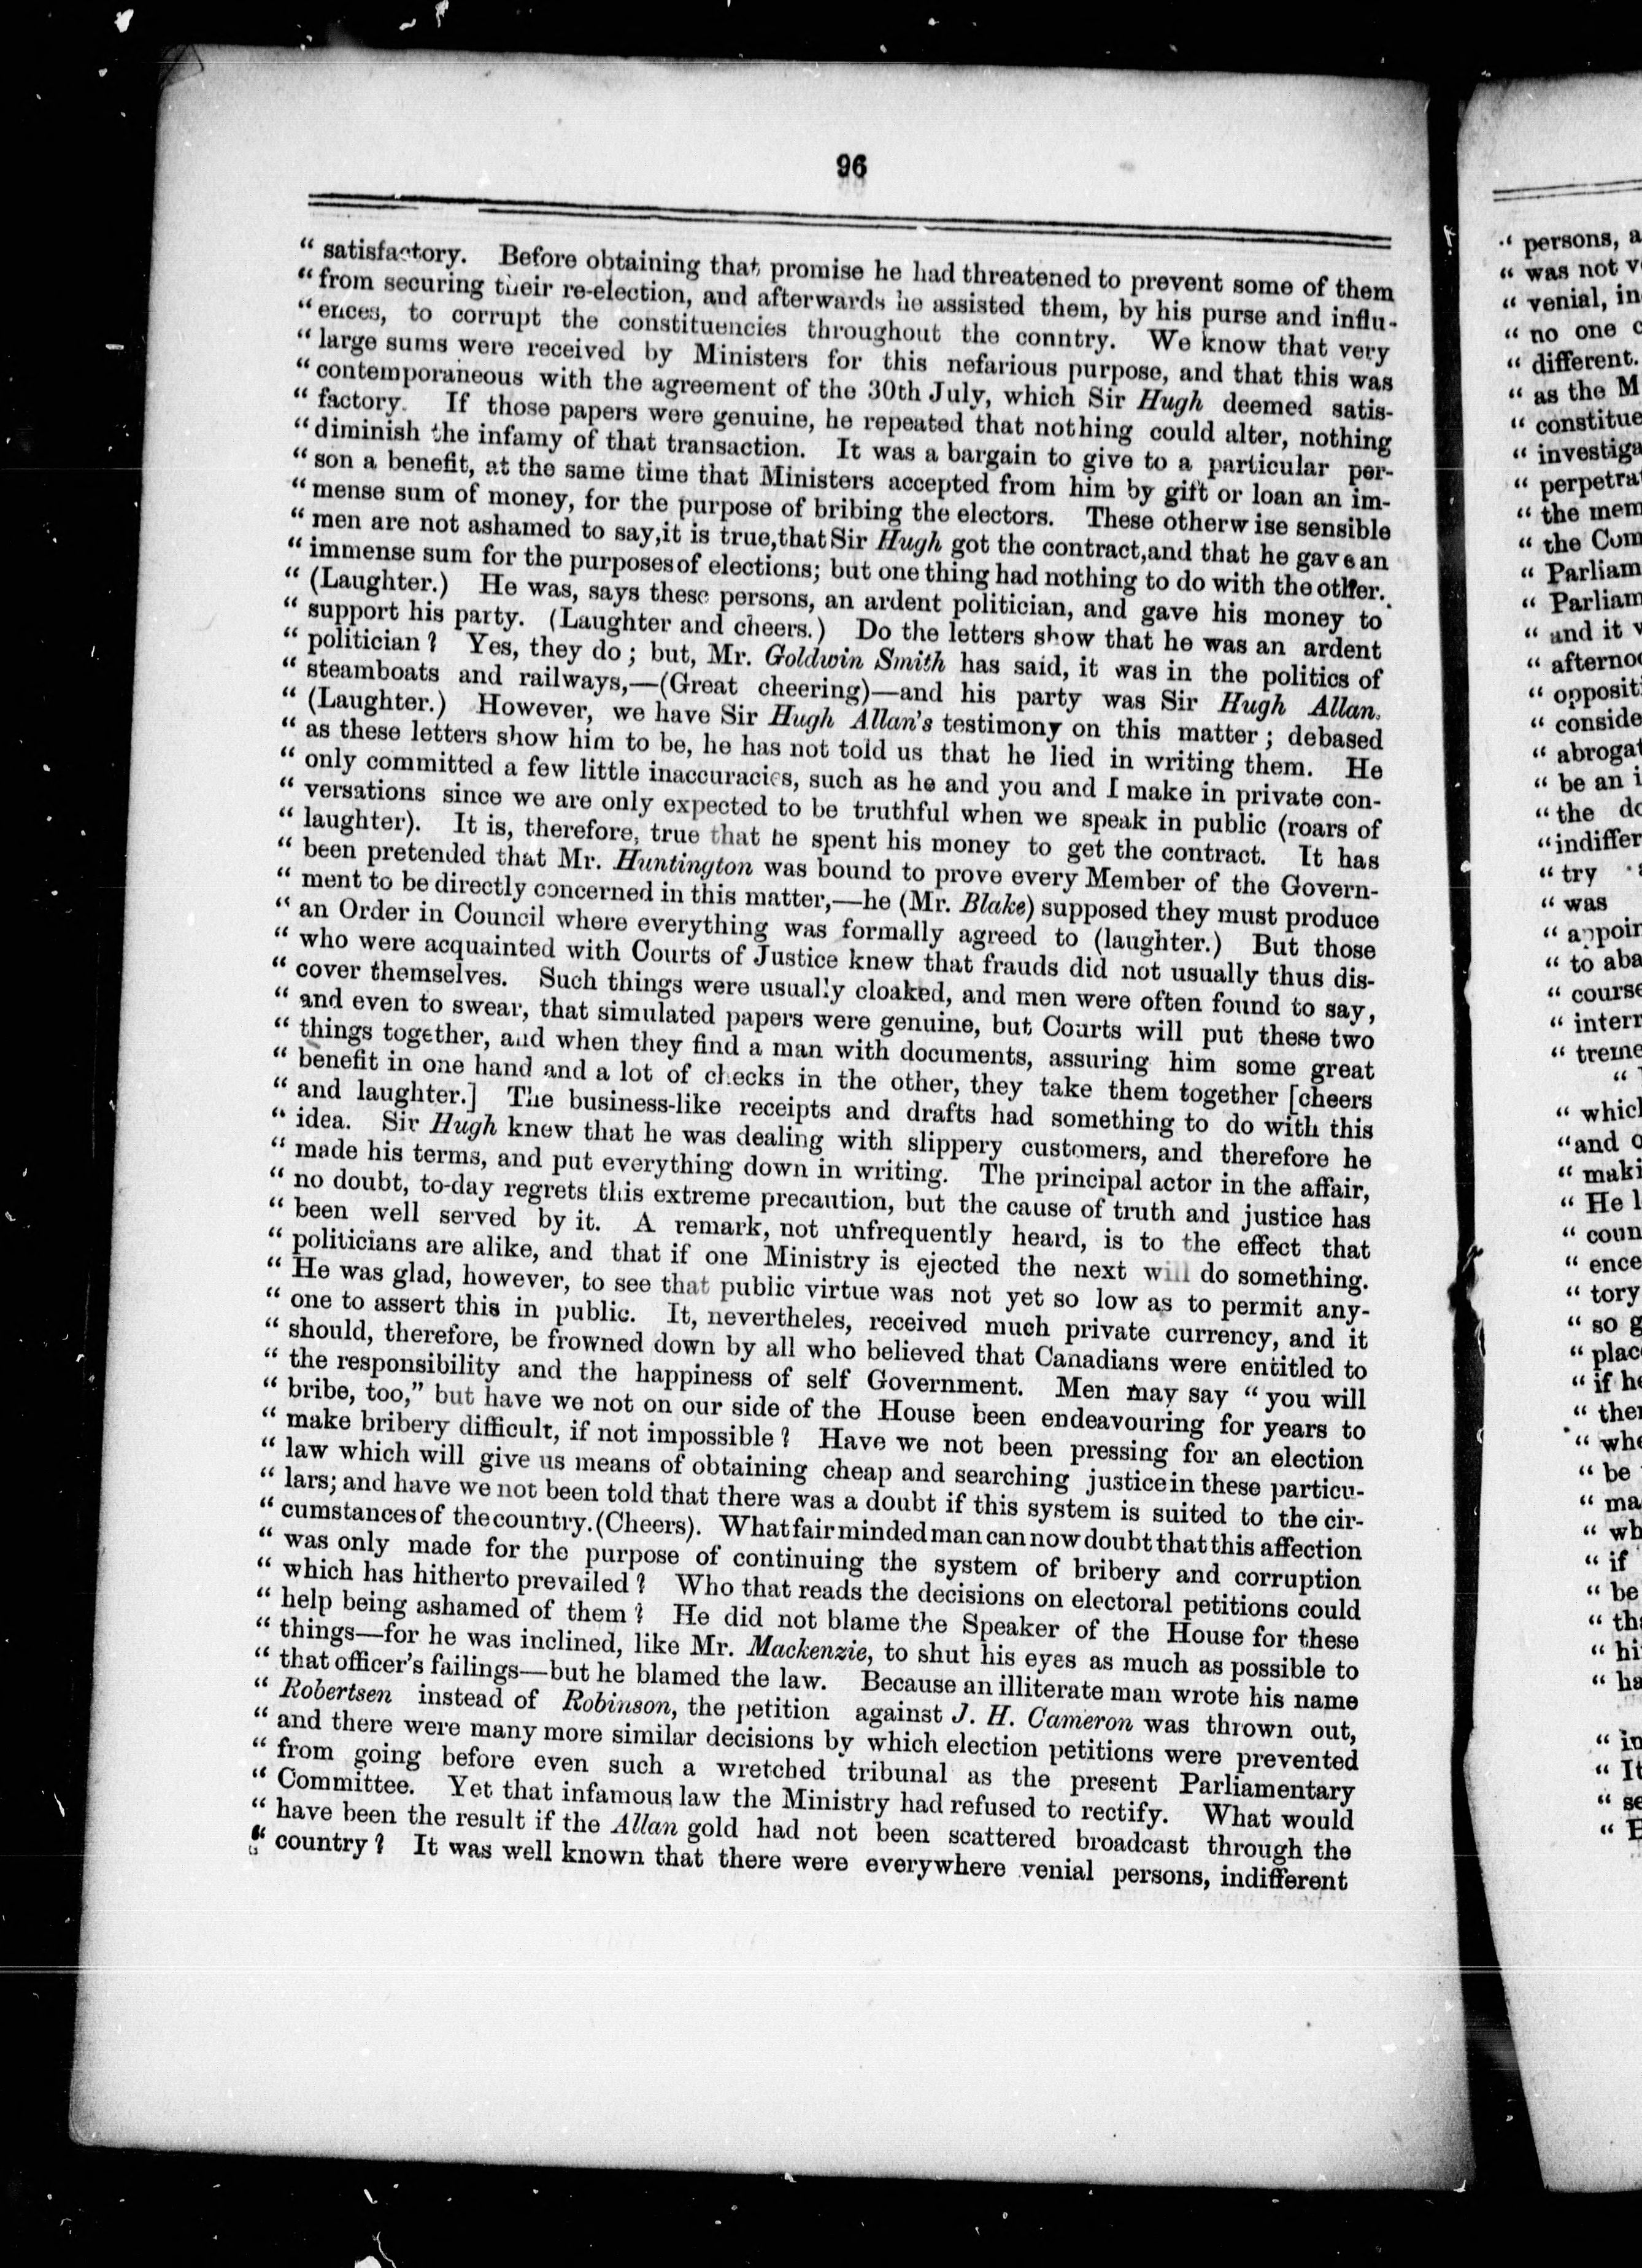 96
“ satisfactory. Before obtaining that promise he had threatened to prevent some of them
“ from securing their re-election, and afterwards he assisted them, by his purse and influ-
“ ences, to corrupt the constituencies throughout the conntry. We know that very
“ large sums were received by Ministers for this nefarious purpose, and that this was
“ contemporaneous with the agreement of the 30th July, which Sir Hugh deemed satis-
“ factory. If those papers were genuine, he repeated that nothing could alter, nothing
“ diminish the infamy of that transaction. It was a bargain to give to a particular per-
“ son a benefit, at the same time that Ministers accepted from him by gift or loan an im-
“ mense sum of money, for the purpose of bribing the electors. These otherw ise sensible
“ men are not ashamed to say, it is true, that Sir Hugh got the contract, and that he gave an
“ immense sum for the purposes of elections; but one thing had nothing to do with the other.
“ (Laughter.) He was, says these persons, an ardent politician, and gave his money to
“ support his party. (Laughter and cheers.) Do the letters show that he was an ardent
“ politician? Yes, they do; but, Mr. Goldwin Smith has said, it was in the politics of
“ steamboats and railways,—(Great cheering)—and his party was Sir Hugh Allan.
“ (Laughter.) However, we have Sir Hugh Allan's testimony on this matter; debased
“ as these letters show him to be, he has not told us that he lied in writing them. He
“ only committed a few little inaccuracies, such as he and you and I make in private con-
“ versations since we are only expected to be truthful when we speak in public (roars of
“ laughter). It is, therefore, true that he spent his money to get the contract. It has
“ been pretended that Mr. Huntington was bound to prove every Member of the Govern-
“ ment to be directly concerned in this matter,—he (Mr. Blake) supposed they must produce
“ an Order in Council where everything was formally agreed to (laughter.) But those
“ who were acquainted with Courts of Justice knew that frauds did not usually thus dis-
“ cover themselves. Such things were usually cloaked, and men were often found to say,
“ and even to swear, that simulated papers were genuine, but Courts will put these two
“ things together, and when they find a man with documents, assuring him some great
“ benefit in one hand and a lot of checks in the other, they take them together [cheers
“ and laughter.] The business-like receipts and drafts had something to do with this
“ idea. Sir Hugh knew that he was dealing with slippery customers, and therefore he
“ made his terms, and put everything down in writing. The principal actor in the affair,
“ no doubt, to-day regrets this extreme precaution, but the cause of truth and justice has
“ been well served by it. A remark, not unfrequently heard, is to the effect that
“ politicians are alike, and that if one Ministry is ejected the next will do something.
“ He was glad, however, to see that public virtue was not yet so low as to permit any-
“ one to assert this in public. It, nevertheless, received much private currency, and it
“ should, therefore, be frowned down by all who believed that Canadians were entitled to
“ the responsibility and the happiness of self Government. Men may say “ you will
“ bribe, too,” but have we not on our side of the House been endeavouring for years to
“ make bribery difficult, if not impossible? Have we not been pressing for an election
“ law which will give us means of obtaining cheap and searching justice in these particu-
“ lars; and have we not been told that there was a doubt if this system is suited to the cir-
“ cumstances of the country. (Cheers). What fair minded man can now doubt that this affection
“ was only made for the purpose of continuing the system of bribery and corruption
“ which has hitherto prevailed? Who that reads the decisions on electoral petitions could
“ help being ashamed of them? He did not blame the Speaker of the House for these
“ things—for he was inclined, like Mr. Mackenzie, to shut his eyes as much as possible to
“ that officer's failings—but he blamed the law. Because an illiterate man wrote his name
“ Robertsen instead of Robinson, the petition against J. H. Cameron was thrown out,
“ and there were many more similar decisions by which election petitions were prevented
“ from going before even such a wretched tribunal as the present Parliamentary
“ Committee. Yet that infamous law the Ministry had refused to rectify. What would
“ have been the result if the Allan gold had not been scattered broadcast through the
“ country? It was well known that there were everywhere venial persons, indifferent
“ persons, a
“ was not v
“ venial, in
“ no one
“ different.
“ as the M
“ constitue
“ investiga
“ perpetra
“ the mem
“ the Com
“ Parliam
“ Parliam
“ and it
“ afternoo
“ oppositi
“ conside
“ abrogat
“ be an i
“ the do
“ indiffer
“ try
“ was
“ appoin
“ to aba
“ course
“ intern
“ treme
“
“ which
“ and
“ maki
“ He l
“ coun
“ ence
“ tory
“ so g
“ plac
“ if he
“ ther
“ whe
“ be
“ ma
“ wh
“ if
“ be
“ tha
“ hi
“ ha
“ in
“ It
“ se
“